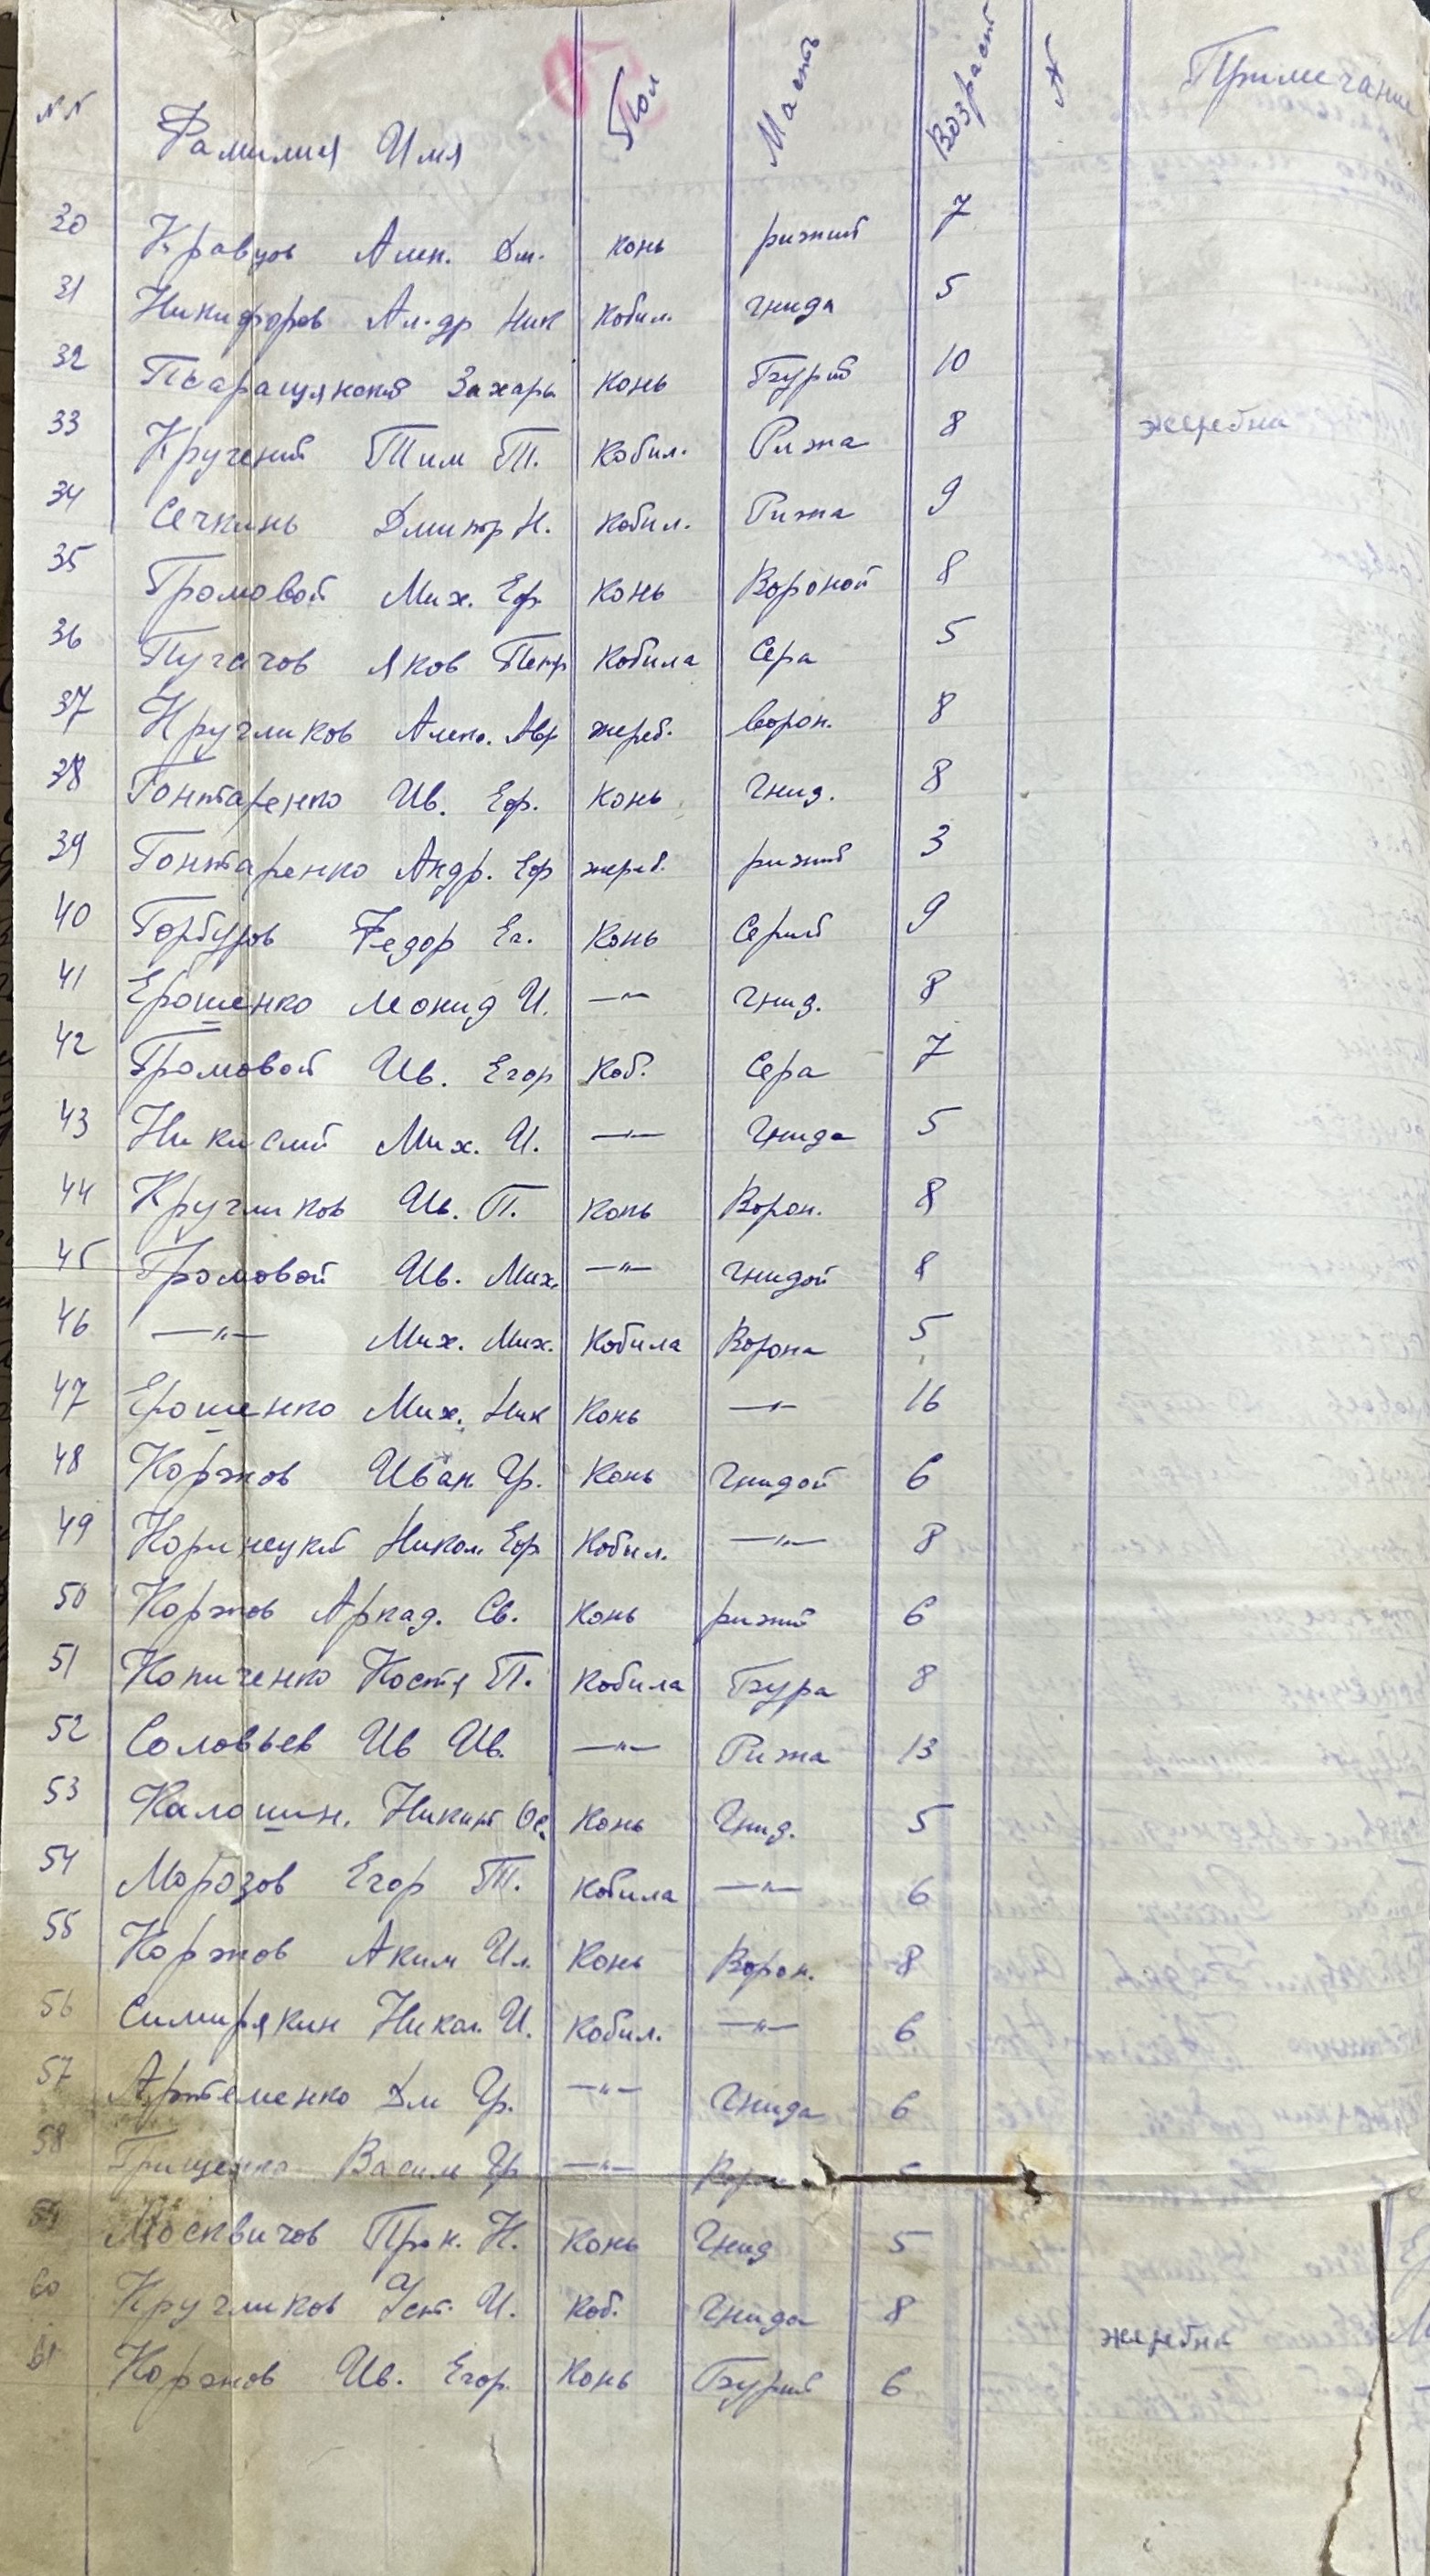 №№ Фамилия Имя Пол Масть Возраст № Примечание
30 Кравцов Алек. Дм. конь рижий 7
31 Никифоров Ал-др Ник кобил. гнида 5
32 Захарь конь Бурий 10
33 Кручений Тим Т. кобил. Рижа 8 жеребна
34 Сечкинь Дмитр Н. кобил. Рижа 9
35 Громовой Мих. Еф. конь Вороной 8
36 Пугачов Яков Петр кобила Сера 5
37 Кругликов Алек. Авр жереб. ворон. 8
38 Гонтаренко Ив. Еф. конь гнид. 8
39 Гонтаренко Андр. Еф жереб. рижий 3
40 Горбузов Федор Ег. конь Серий 9
41 Ерошенко Леонид И. —"— гнид. 8
42 Громовой Ив. Егор коб. Сера 7
43 Никислий Мих. И. —"— Гнида 5
44 Кругликов Ив. П. конь Ворон. 8
45 Громовой Ив. Мих. —"— гнидой 8
46 —"— Мих. Мих. кобила Ворона 5
47 Ерошенко Мих. Ник конь —"— 16
48 Коржов Иван Гр. конь Гнидой 6
49 Никол. Еф. кобил. —"— 8
50 Коржов Аркад. Св. конь рижий 6
51 Копиченко Костя П. кобила Бура 8
52 Соловьев Ив Ив. —"— Рижа 13
53 Калошин. Никит Ос. конь Гнид. 5
54 Морозов Егор Т. кобила —"— 6
55 Коржов Аким Ил. конь Ворон. 8
56 Симирякин Никол. И. кобил. —"— 6
57 Артеменко Дм Гр. —"— Гнида 6
58 Грищенко Василь Гр —"—
59 Москвичов Прок. Н. конь Гнид 5
60 Кругликов Уст. И. коб. Гнида 8 жеребна
61 Коржов Ив. Егор. конь Бурий 6